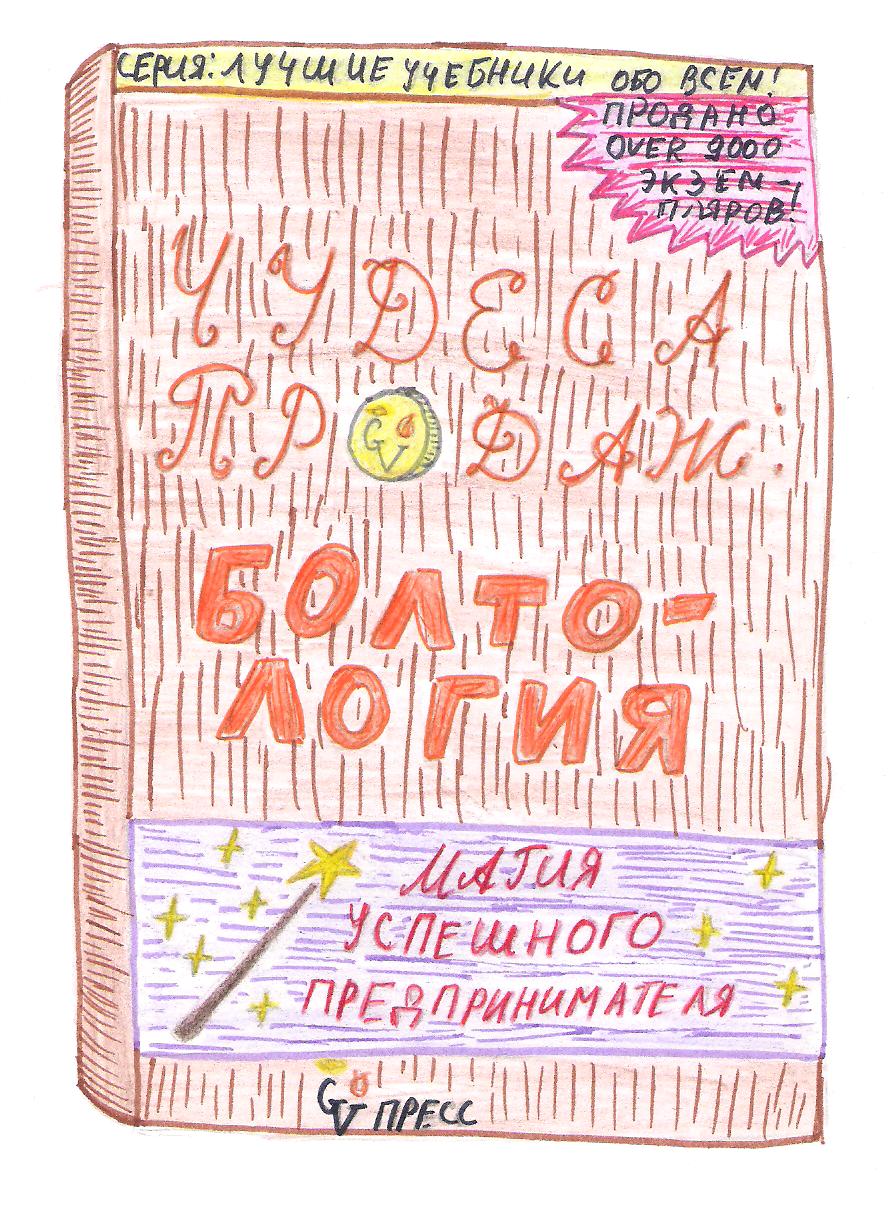 СЕРИЯ: ЛУЧШИЕ УЧЕБНИКИ ОБО ВСЕМ!
ПРОДАНО
OVER 9000
ЭКЗЕМ-
ПЛЯРОВ!
ЧУДЕСА
ПРОДАЖ:
GV
БОЛТО-
ЛОГИЯ
МАГИЯ
УСПЕШНОГО
ПРЕДПРИНИМАТЕЛЯ
GV ПРЕСС